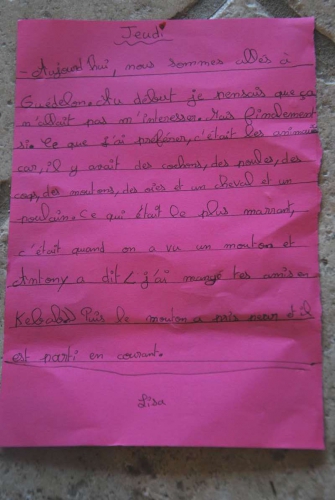 Jeudi
- Aujourd'hui, nous sommes allés à
Guédelon. Au début je pensais que ça
n'allait pas m'interesser. Mais finalement
si. Ce que j'ai préférer, c'était les animaux
car, il y avait des cochons, des poules, des
coqs, des moutons, des oies et un cheval et un
poulain. Ce qui était le plus marrant,
c'était quand on a vu un mouton et
Antony a dit < j'ai mangé tes amis en
Kebab Puis le mouton a pris peur et il
est parti en courant.
Lisa